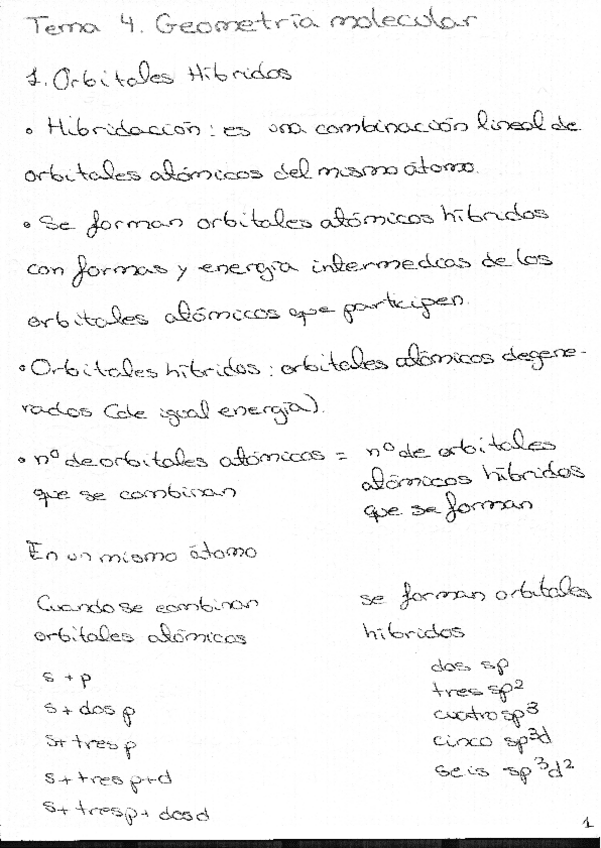 Tema 4. Geometría molecular
1. Orbitales Híbridos
• Hibridación: es una combinación lineal de
orbitales atómicos del mismo átomo.
• Se forman orbitales atómicos híbridos
con formas y energía intermedias de los
orbitales atómicos que participen.
• Orbitales híbridos: orbitales atómicos degene-
rados (de igual energía).
• nº de orbitales atómicos = nº de orbitales
que se combinan
atómicos híbridos
que se forman
En un mismo átomo
Cuando se combinan
orbitales atómicos
s + p
s + dos p
s + tres p
s + tres p + d
s + tres p + dos d
se forman orbitales
híbridos
dos sp
tres sp²
cuatro sp³
cinco sp³d
seis sp³d²
1